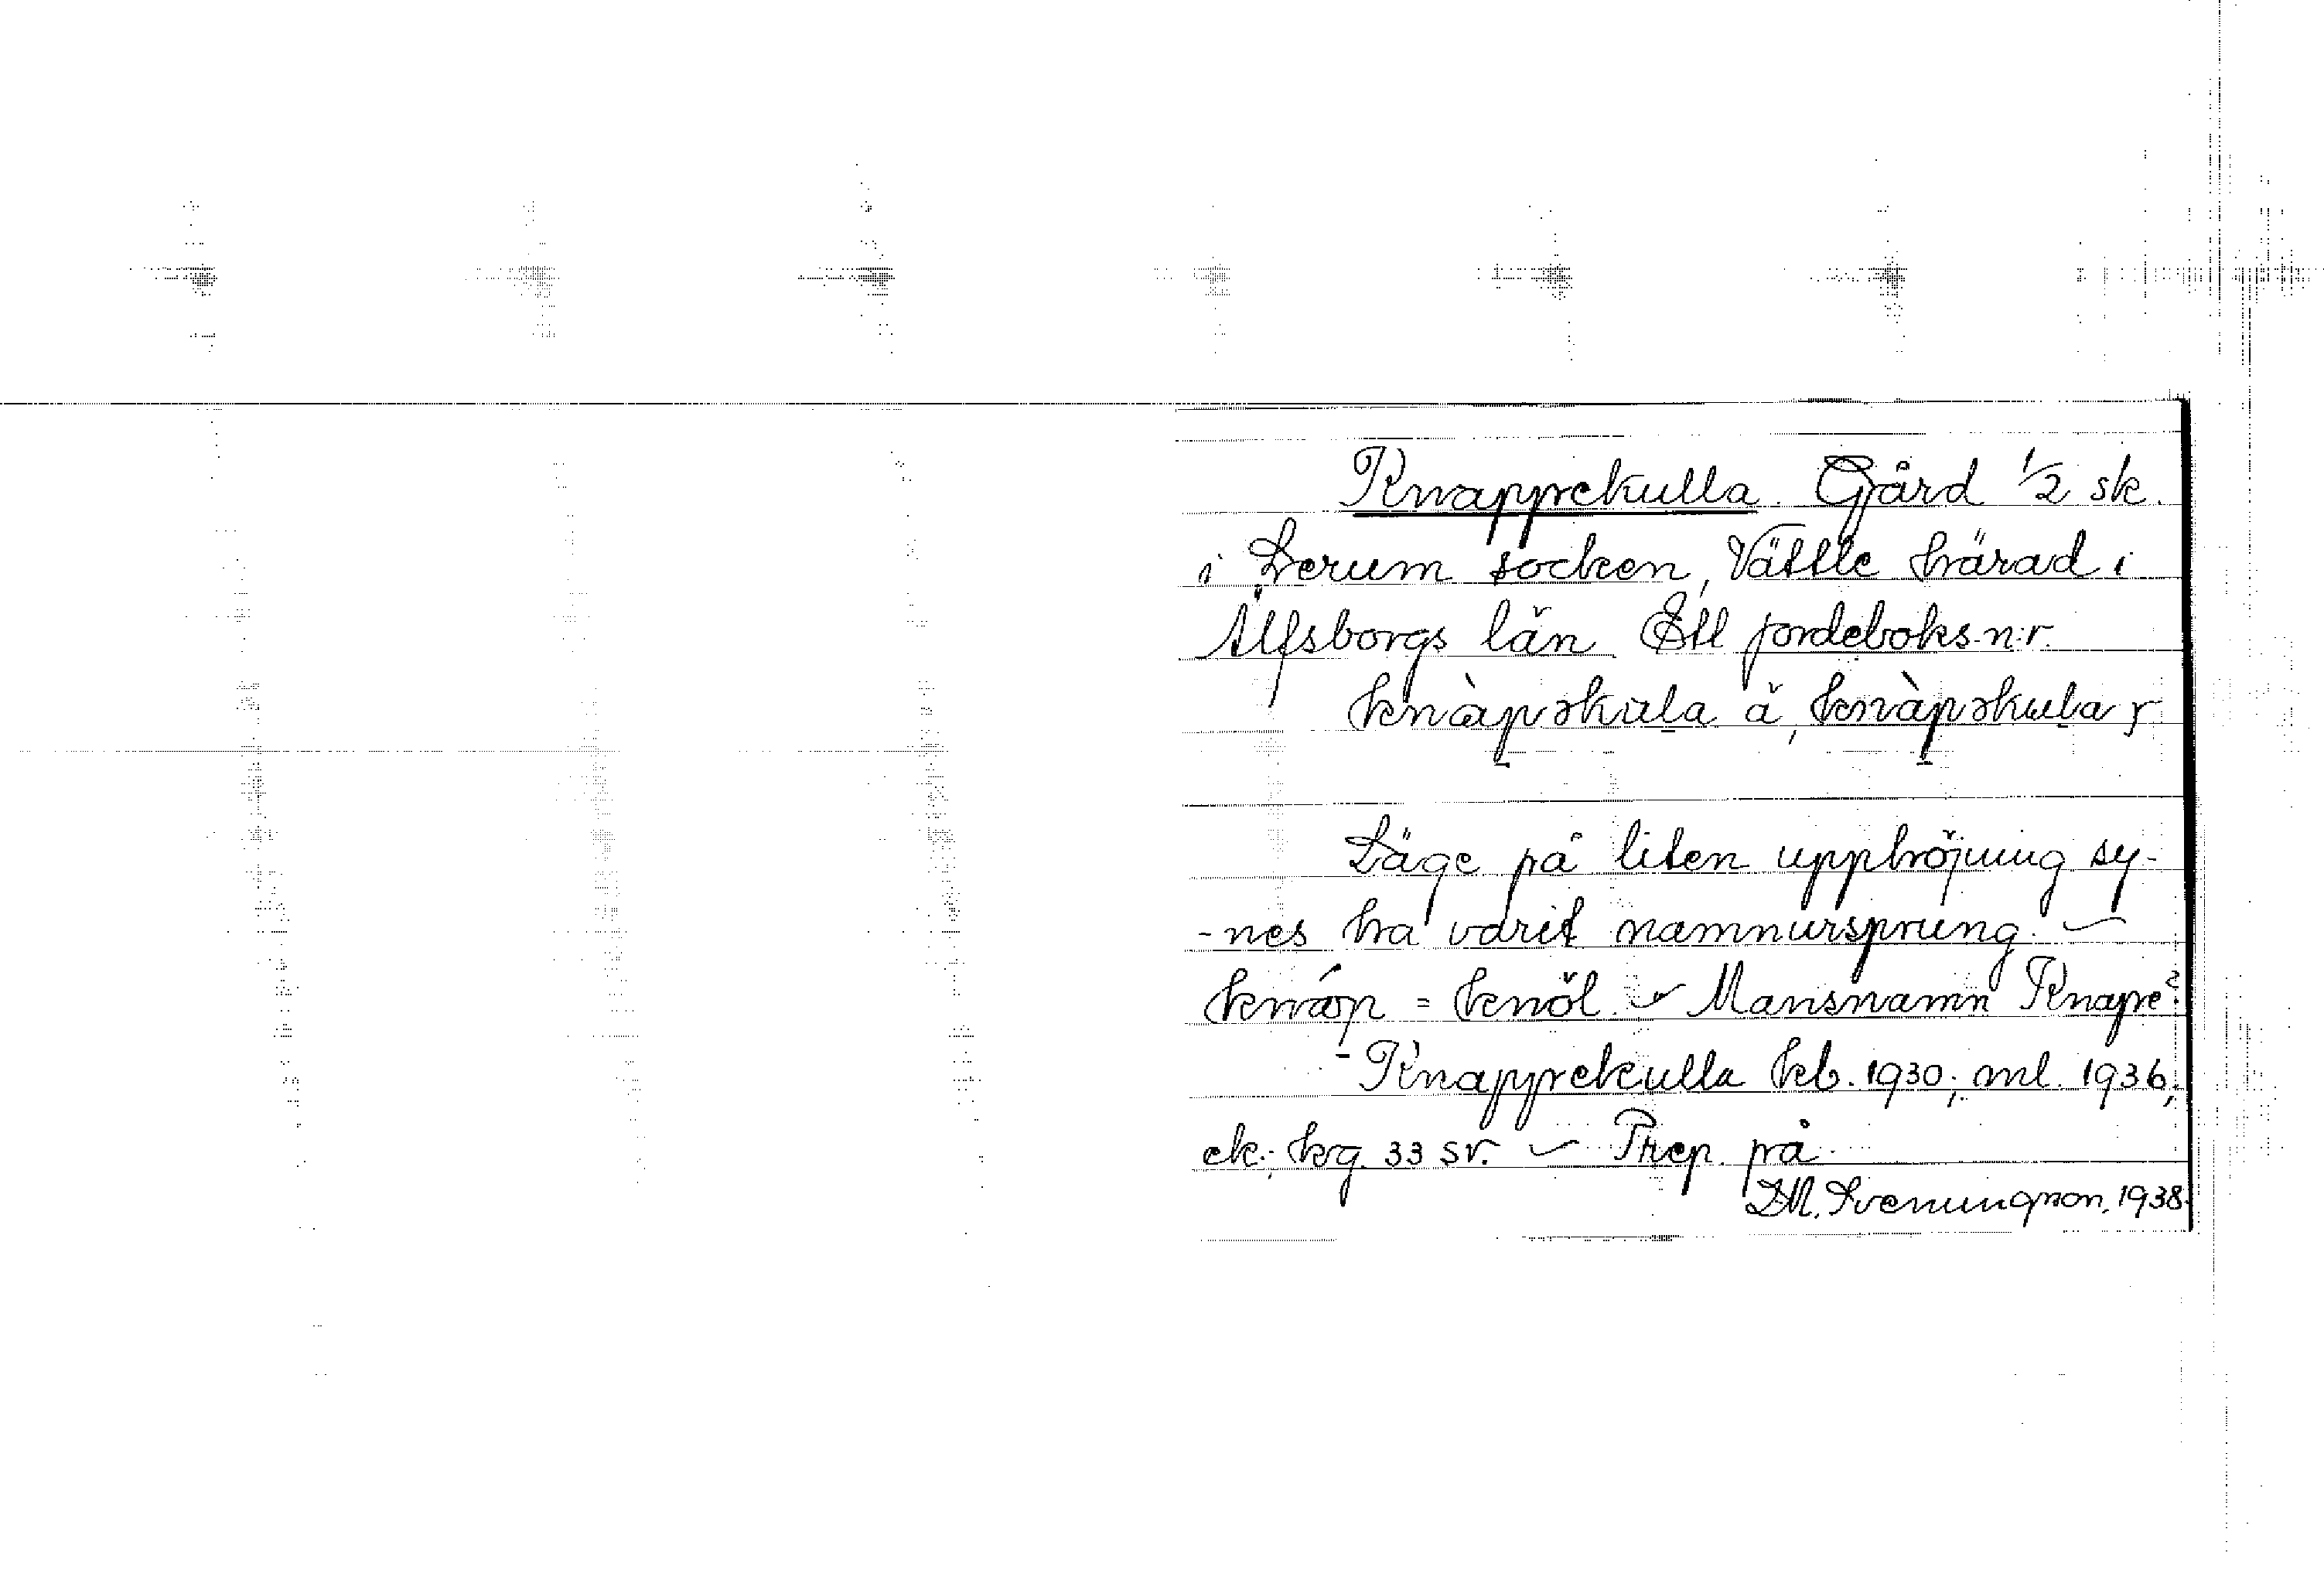 Knappekulla. Gård 1/2 sk.
i Lerum socken, Vättle härad i
Älfsborgs län. Ett jordeboks-n:r.
knàpəkula å, knàpəkula r
Läge på liten upphöjning sy-
-nes ha varit namnursprung. –
knáp = knöl. – Mansnamn Knape?
- Knappekulla kb. 1930; ml. 1936,
ek.; kg. 33 sv. – Prep. på
LM. Svenungson, 1938.